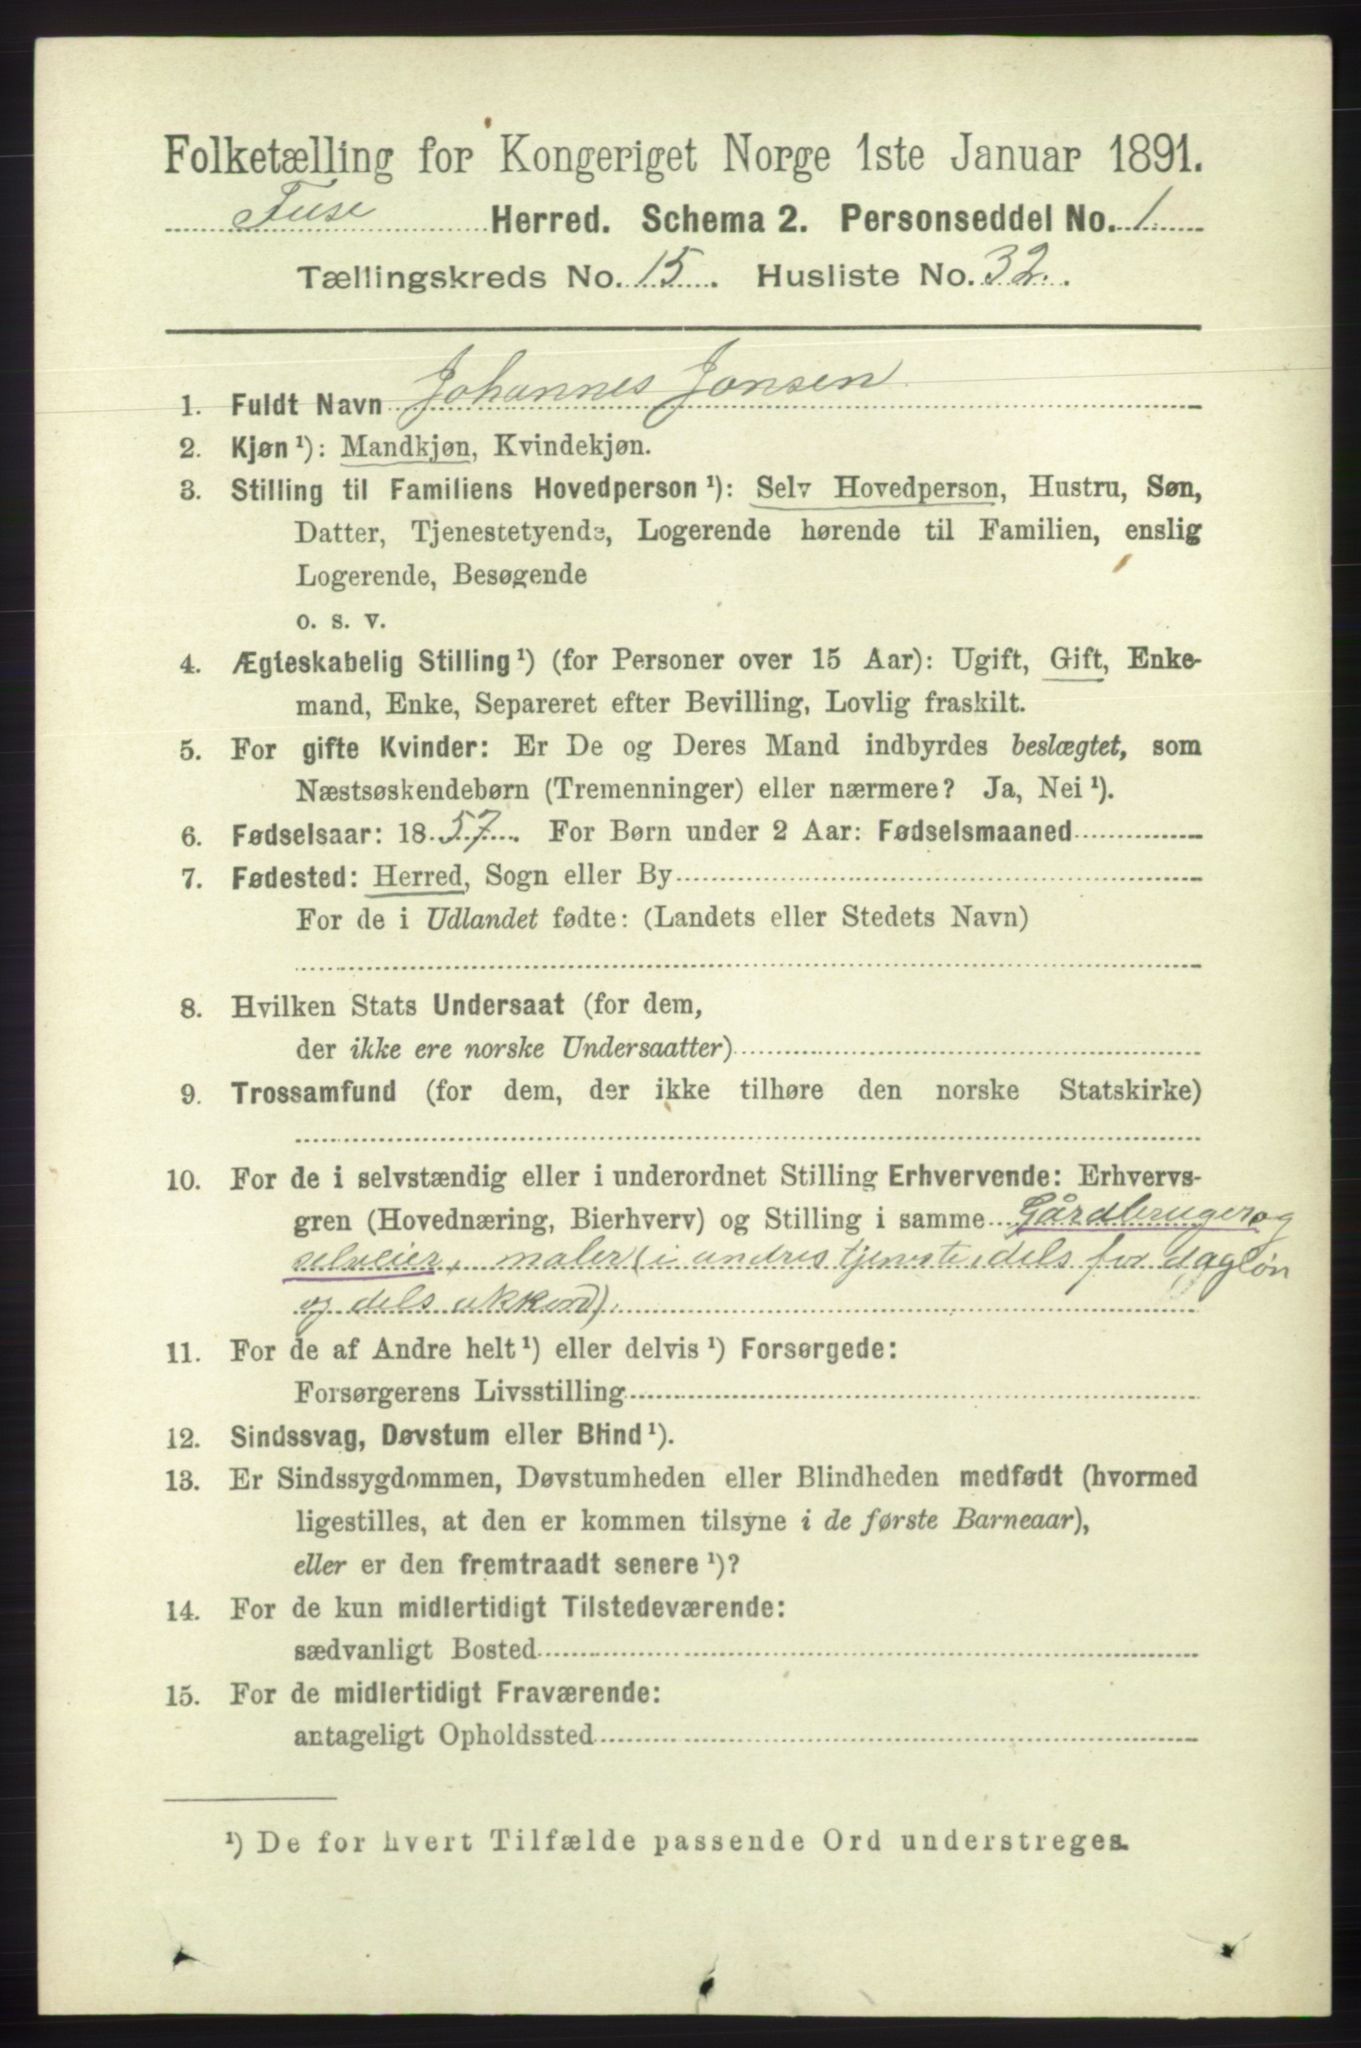 Folketælling for Kongeriget Norge 1ste Januar 1891.
Fuse Herred. Schema 2. Personseddel No. 1
Tællingskreds No. 15. Husliste No. 32.
1. Fuldt Navn Johannes Jonsen
2. Kjøn¹): Mandkjøn, Kvindekjøn.
3. Stilling til Familiens Hovedperson¹): Selv Hovedperson, Hustru, Søn,
Datter, Tjenestetyende, Logerende hørende til Familien, enslig
Logerende, Besøgende
o. s. v.
4. Ægteskabelig Stilling¹) (for Personer over 15 Aar): Ugift, Gift, Enke-
mand, Enke, Separeret efter Bevilling, Lovlig fraskilt.
5. For gifte Kvinder: Er De og Deres Mand indbyrdes beslægtet, som
Næstsøskendebørn (Tremenninger) eller nærmere? Ja, Nei¹).
6. Fødselsaar: 1857. For Børn under 2 Aar: Fødselsmaaned
7. Fødested: Herred, Sogn eller By
For de i Udlandet fødte: (Landets eller Stedets Navn)
8. Hvilken Stats Undersaat (for dem,
der ikke ere norske Undersaatter)
9. Trossamfund (for dem, der ikke tilhøre den norske Statskirke)
10. For de i selvstændig eller i underordnet Stilling Erhvervende: Erhvervs-
gren (Hovednæring, Bierhverv) og Stilling i samme Gårdbruger og
selveier, maler (i andres tjeneste, dels for dagløn
og dels akkord).
11. For de af Andre helt¹) eller delvis¹) Forsørgede:
Forsørgerens Livsstilling
12. Sindssvag, Døvstum eller Blind¹).
13. Er Sindssygdommen, Døvstumheden eller Blindheden medfødt (hvormed
ligestilles, at den er kommen tilsyne i de første Barneaar),
eller er den fremtraadt senere¹)?
14. For de kun midlertidigt Tilstedeværende:
sædvanligt Bosted
15. For de midlertidigt Fraværende:
antageligt Opholdssted
¹) De for hvert Tilfælde passende Ord understreges.